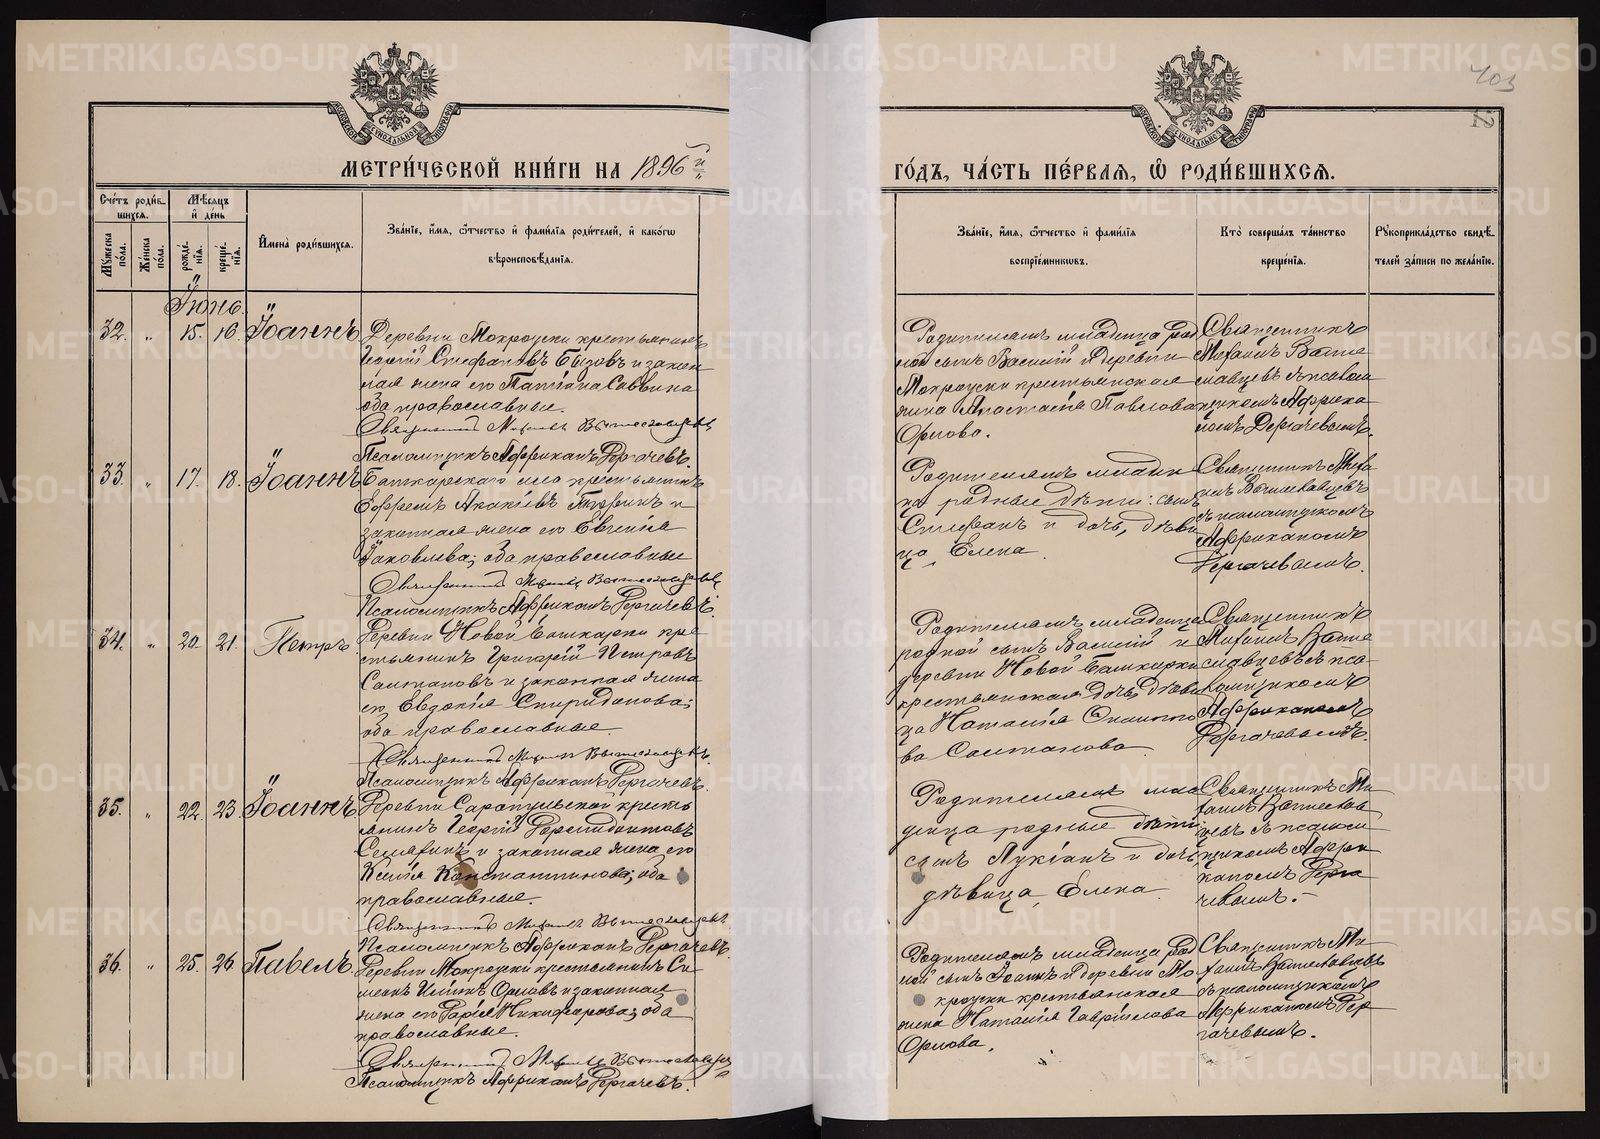 403
МЕТРИ́ЧЕСКОЙ КНИ́ГИ НА 1896й
ГО́ДЪ, ЧА́СТЬ ПЕ́РВАЯ, Ѡ҆ РОДИ́ВШИХСЯ.
Сче́тъ роди́вшихся.
Му́жеска по́ла.
Же́нска по́ла.
Мѣ́сяцъ и҆ де́нь
рожде́нїя.
креще́нїя.
И҆мена̀ роди́вшихся.
Зва́нїе, и҆́мя, ѻ҆́тчество и҆ фами́лїя роди́телей, и҆ како́гѡ
вѣроисповѣ́данїя.
Зва́нїе, и҆́мя, ѻ҆́тчество и҆ фами́лїя
воспрїе́мникѡвъ.
Кто̀ соверша́лъ та́инство
креще́нїя.
Рꙋкоприкла́дство свидѣ́-
телей за́писи по жела́нїю.
Іюнь.
32. " 15. 16. Іоаннъ
Деревни Мокроуски крестьянинъ
Георгій Стефановъ Бызовъ и закон
ная жена его Татіана Саввина
оба православные.
Священникъ Михаилъ Ватиславцевъ
Псаломщикъ Африканъ Дергачевъ.
Родителямъ младенца род
ной сынъ Василій и деревни
Мокроуски крестьянская
жена Анастасія Павлова
Орлова.
Священникъ
Михаилъ Вати
славцевъ съ псалом
щикомъ Африка
номъ Дергачевымъ.
33. " 17. 18. Іоаннъ
Башкарского села крестьянинъ
Ефремъ Акакіевъ
законная жена его Евгенія
Іаковлева; оба православные
Священникъ Михаилъ Ватиславцевъ
Псаломщикъ Африканъ Дергачевъ.
Родителямъ младен
ца родные дѣти: сынъ
Стефанъ и дочь, дѣви
ца, Елена.
Священникъ Миха
илъ Ватиславцевъ
съ псаломщикомъ
Африканомъ
Дергачевымъ.
34. " 20. 21. Петръ.
Деревни Новой Башкарки кре
стьянинъ Григорій Петровъ
Салтановъ и законная жена
его Евдокія Спиридонова;
оба православные.
Священникъ Михаилъ Ватиславцевъ.
Псаломщикъ Африканъ Дергачевъ.
Родителямъ младенца
родной сынъ Василій и
деревни Новой Башкарки
крестьянская дочь, дѣви
ца Наталія
ва Салтанова.
Священникъ
Михаилъ Вати
славцевъ съ пса
ломщикомъ
Африканомъ
Дергачевымъ.
35. " 22. 23. Іоаннъ
Деревни Сарапульской кресть
янинъ Георгій Фермидонтовъ
и законная жена его
Ксенія Константинова; оба
православные.
Священникъ Михаилъ Ватиславцевъ.
Псаломщикъ Африканъ Дергачевъ.
Родителямъ мла
денца родные дѣти:
сынъ Лукіанъ и дочь,
дѣвица, Елена.
Священникъ Ми
хаилъ Ватислав
цевъ съ псалом
щикомъ Афри
каномъ Дерга
чевымъ.
36. " 25. 26. Павелъ.
Деревни Мокроуски крестьянинъ Си
меонъ Ильинъ Орловъ и законная
жена его Дарія Никифорова; оба
православные.
Священникъ Михаилъ Ватиславцевъ
Псаломщикъ Африканъ Дергачевъ.
Родителямъ младенца род
ной сынъ Іоаннъ и деревни Мо
кроуски крестьянская
жена Наталія Гавріилова
Орлова.
Священникъ Ми
хаилъ Ватиславцевъ
съ псаломщикомъ
Африканомъ Дер
гачевымъ.
METRIKI.GASO-URAL.RU